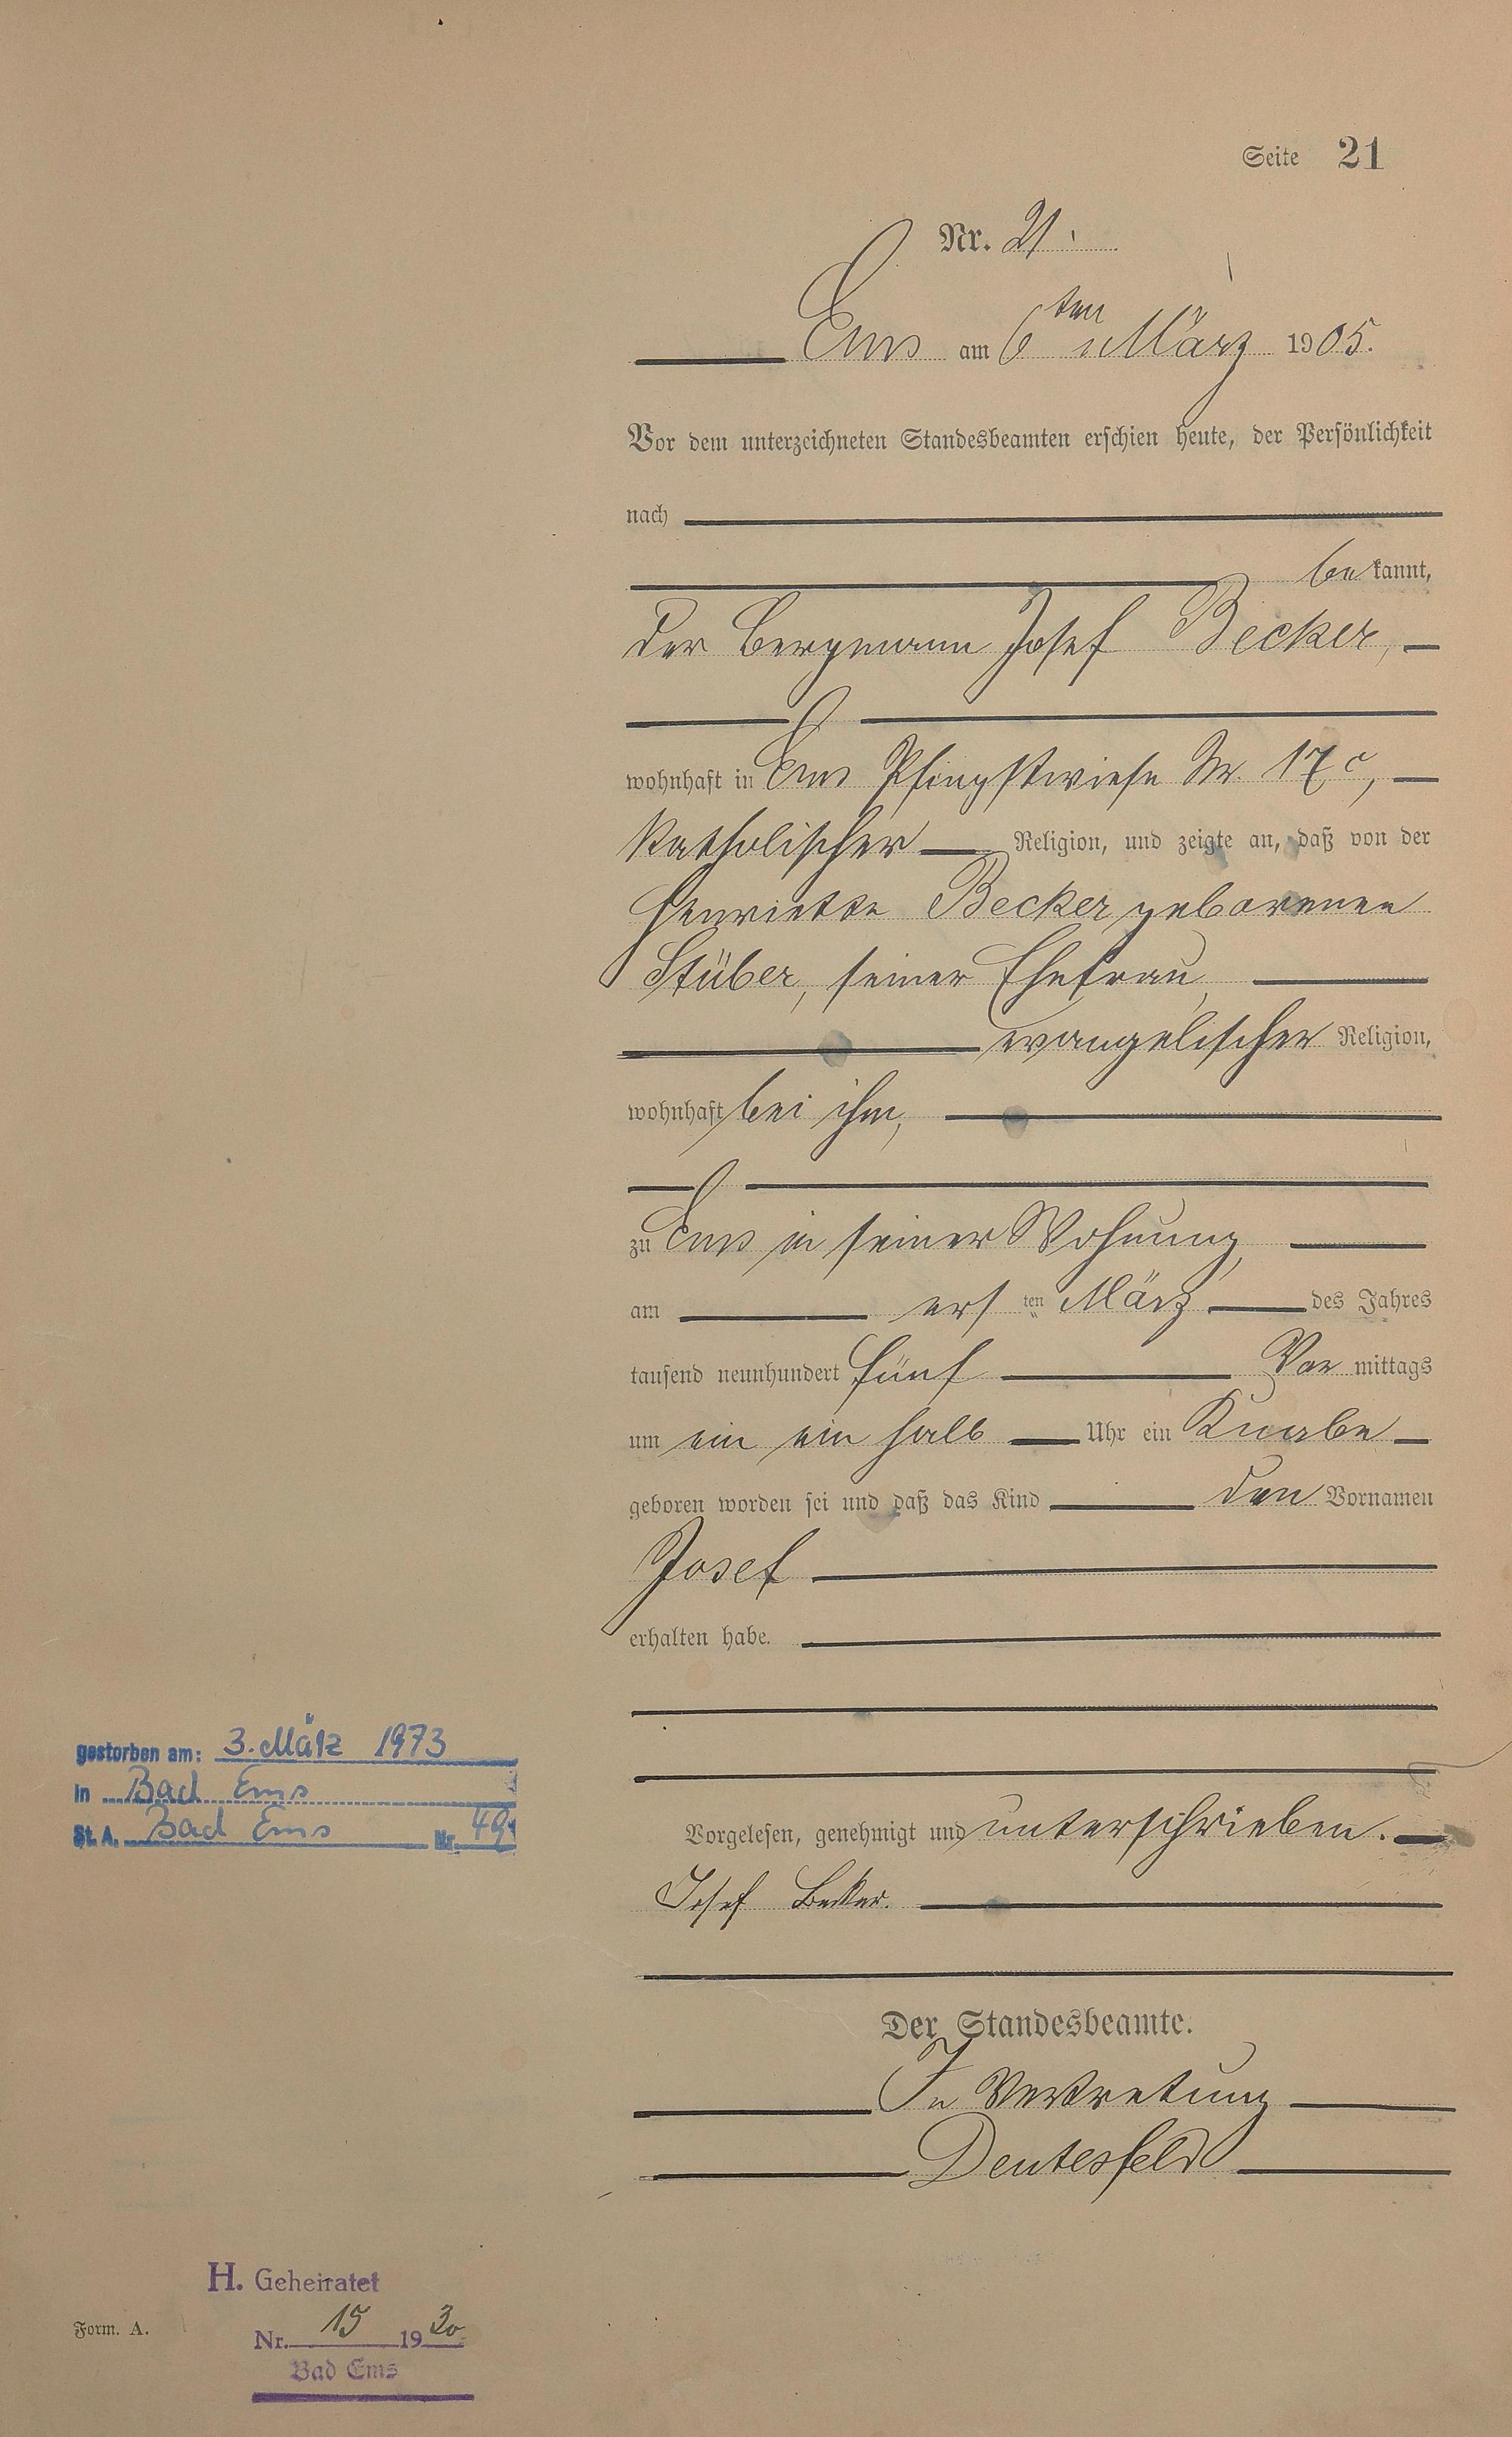 Seite 21
Nr. 21.
Ems am 6ten März 1905.
Vor dem unterzeichneten Standesbeamten erschien heute, der Persönlichkeit
nach
bekannt,
der Bergmann Josef Becker,
wohnhaft in Ems Pfingstwiese Nr. 17c,
katholischer Religion, und zeigte an, daß von der
Henriette Becker geborenen
Stüber, seiner Ehefrau,
evangelischer Religion,
wohnhaft bei ihm,
zu Ems in seiner Wohnung,
am ersten März des Jahres
tausend neunhundert fünf Vormittags
um ein ein halb Uhr ein Knabe
geboren worden sei und daß das Kind den Vornamen
Josef
erhalten habe.
Vorgelesen, genehmigt und unterschrieben.
Josef Becker.
Der Standesbeamte.
In Vertretung
Deutesfeld
gestorben am: 3. März 1973
in Bad Ems
St. A. Bad Ems Nr. 49
H. Geheiratet
Nr. 15 1930
Bad Ems
Form. A.